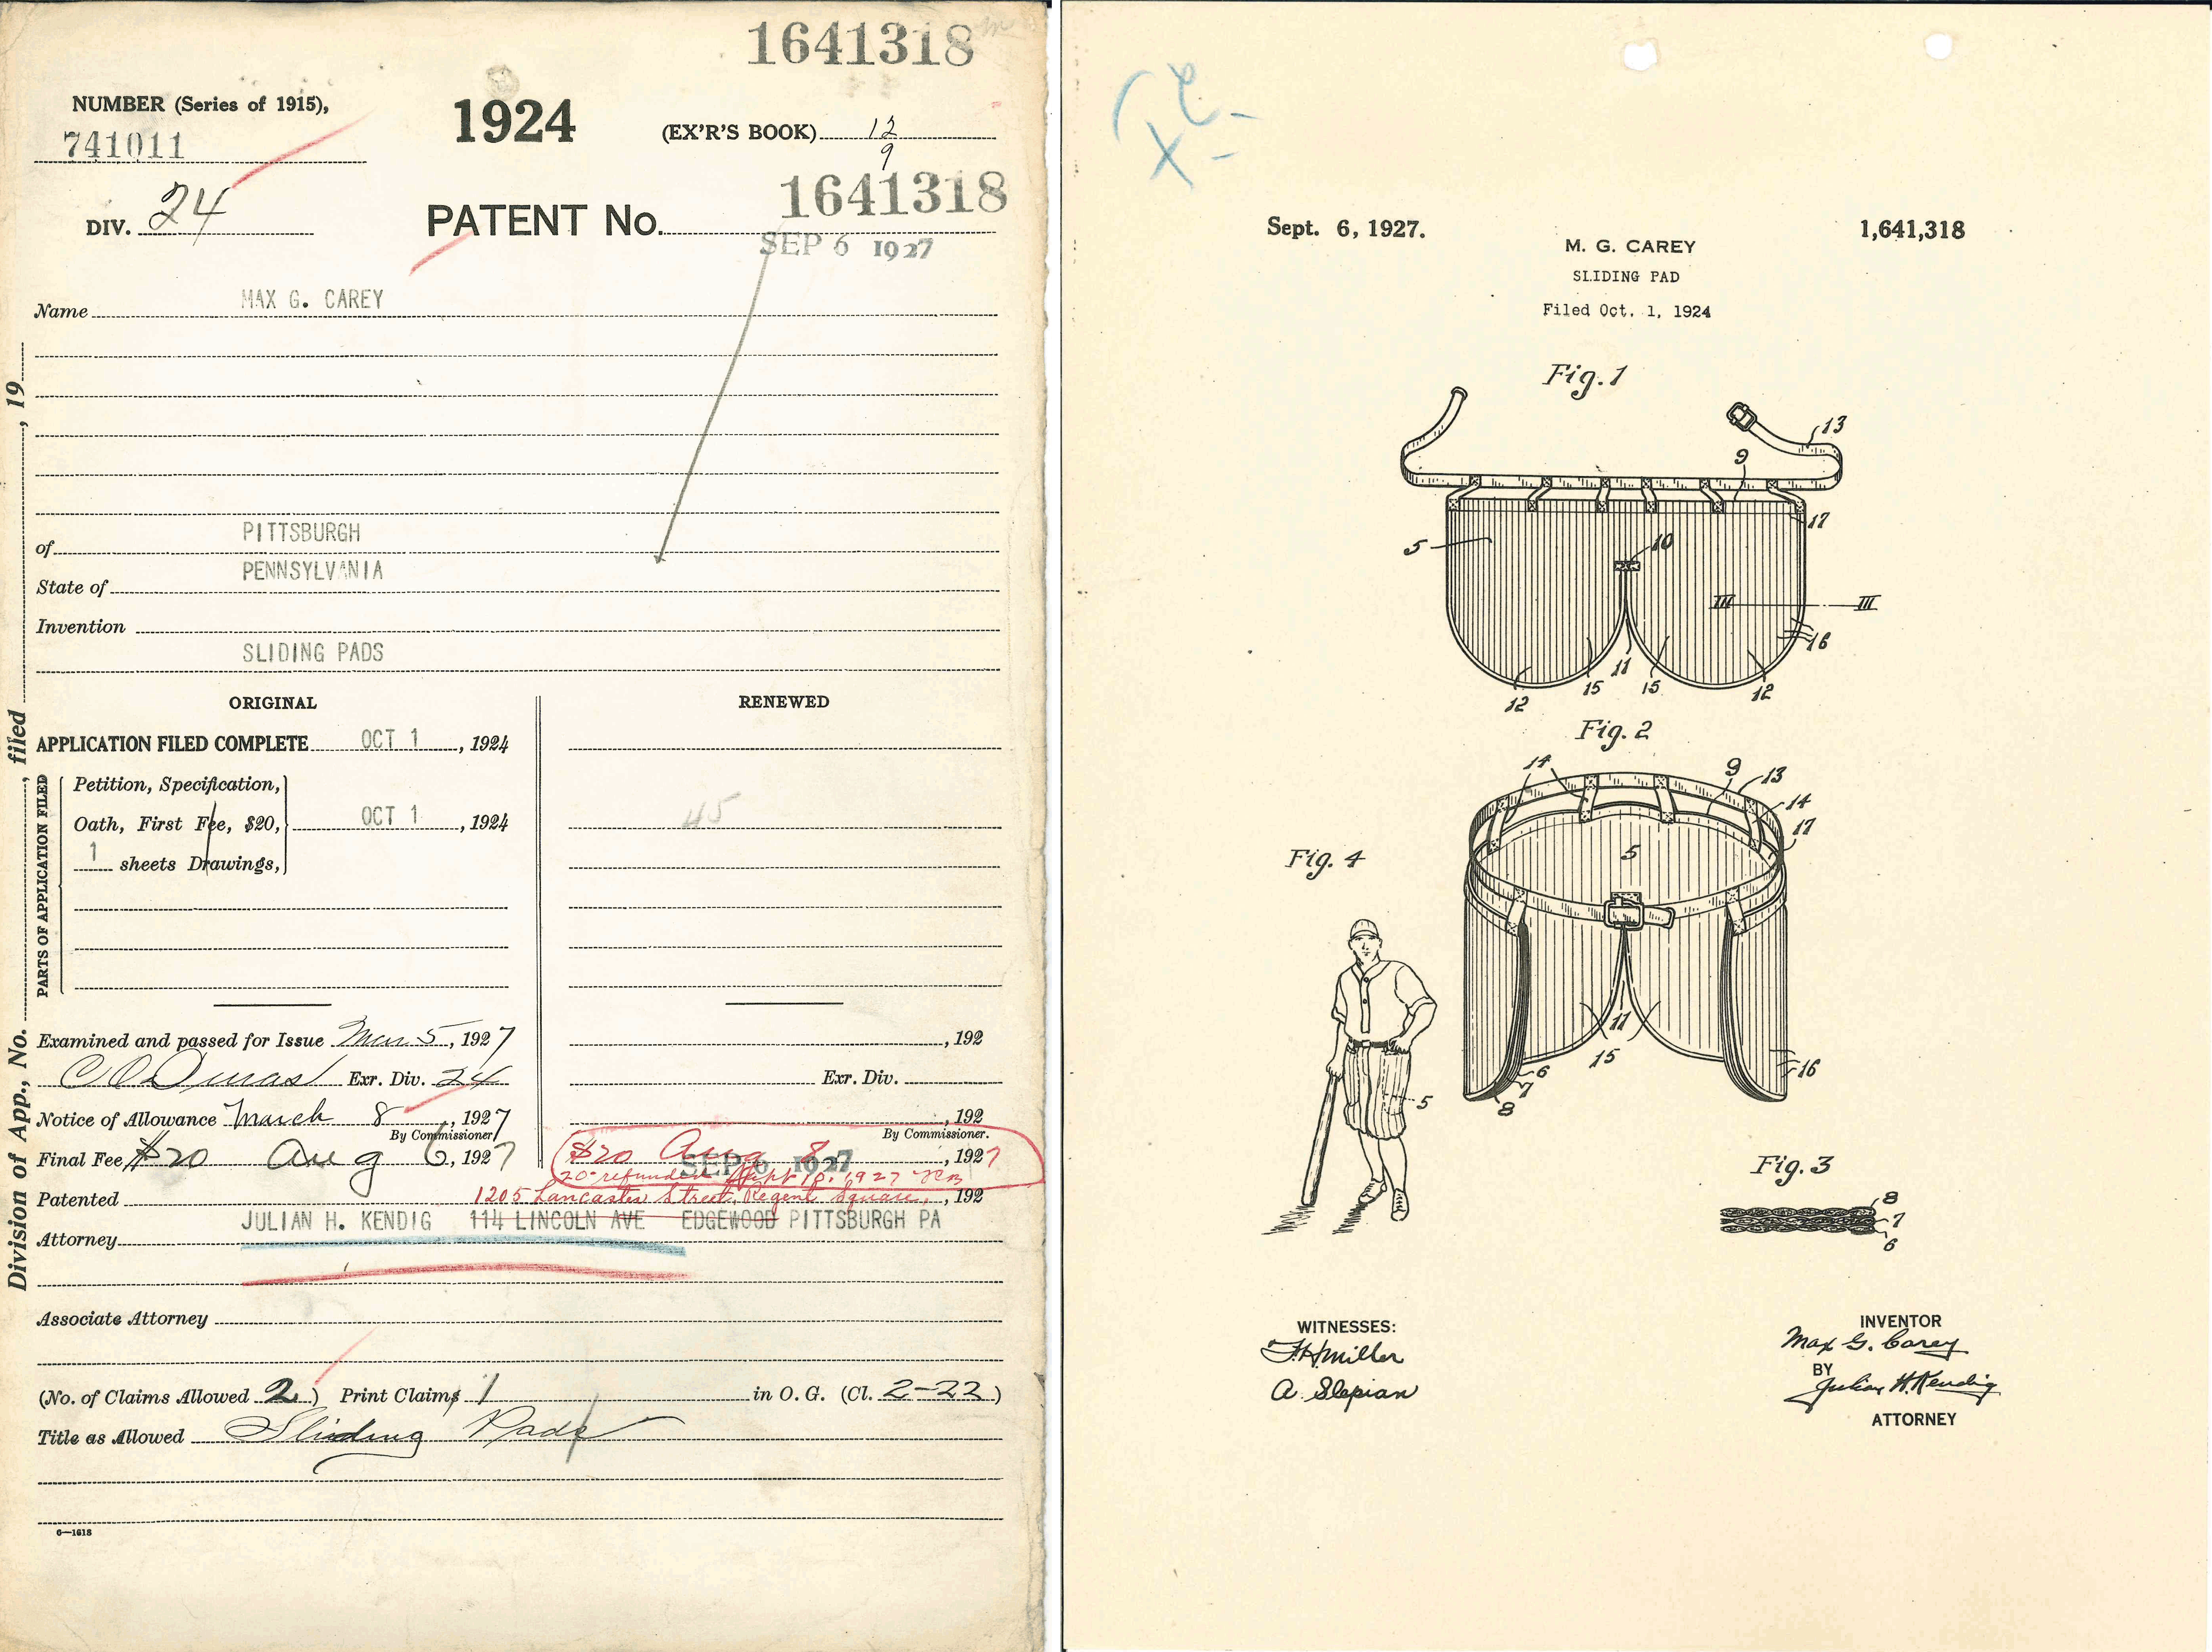 1641318
NUMBER (Series of 1915),
741011
1924
(EX'R'S BOOK) 12
9
DIV. 24
PATENT No. 1641318
SEP 6 1927
Name MAX G. CAREY
of PITTSBURGH
State of PENNSYLVANIA
Invention
SLIDING PADS
ORIGINAL
RENEWED
APPLICATION FILED COMPLETE OCT 1, 1924
PARTS OF APPLICATION FILED
Petition, Specification,
Oath, First Fee, $20, OCT 1, 1924
1 sheets Drawings,
45
Examined and passed for Issue Mar 5, 1927
, 192
Exr. Div. 24
Exr. Div.
Notice of Allowance March 8, 1927
, 192
By Commissioner
By Commissioner.
Final Fee $20 Aug 6, 1927
$20 Aug 8, 1927
SEP 6 1927
20 refunded Sept 10. 1927
Patented , 192
1205 Lancaster Street, Regent Square,
JULIAN H. KENDIG 114 LINCOLN AVE EDGEWOOD PITTSBURGH PA
Attorney
Associate Attorney
(No. of Claims Allowed 2) Print Claims 1 in O. G. (Cl. 2-22)
Title as Allowed Sliding Pads
6—1618
Division of App., No. , filed , 19
Sept. 6, 1927.
1,641,318
M. G. CAREY
SLIDING PAD
Filed Oct. 1, 1924
Fig. 1
13
9
17
5
10
III III
16
11
15 15
12 12
Fig. 2
14 9 13
14
17
5
11
15
6
7
8
16
Fig. 4
5
Fig. 3
8
7
6
WITNESSES:
F.H. Miller
A. Slepian
INVENTOR
Max G. Carey
BY
Julian H. Kendig
ATTORNEY